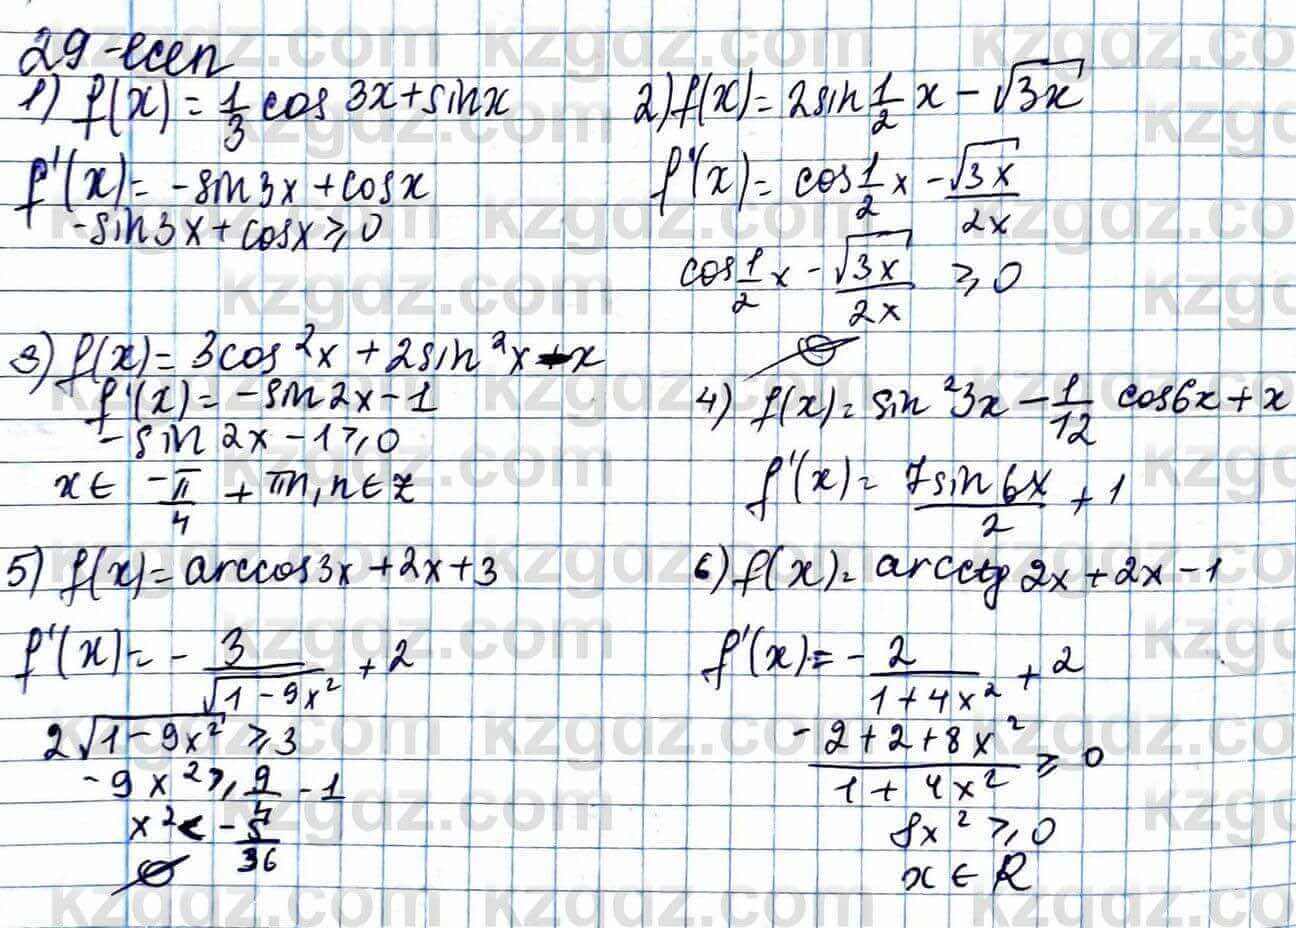 29-есеп
1) f(x) = 1/3 cos 3x + sin x
f'(x) = -sin 3x + cos x
-sin 3x + cos x ⩾ 0
2) f(x) = 2 sin 1/2 x - √3x
f'(x) = cos 1/2 x - √3x/2x
cos 1/2 x - √3x/2x ⩾ 0
∅
3) f(x) = 3cos²x + 2sin²x - x
f'(x) = -sin 2x - 1
-sin 2x - 1 ⩾ 0
x ∈ -π/4 + πn, n ∈ z
4) f(x) = sin²3x - 1/12 cos 6x + x
f'(x) = 7 sin 6x/2 + 1
5) f(x) = arccos 3x + 2x + 3
f'(x) = - 3/√1 - 9x² + 2
2√1 - 9x² ⩾ 3
-9x² ⩾ 9/4 - 1
x² < - 5/36
∅
6) f(x) = arcctg 2x + 2x - 1
f'(x) = - 2/1 + 4x² + 2
-2 + 2 + 8x²/1 + 4x² ⩾ 0
8x² ⩾ 0
x ∈ R
kzgdz.com